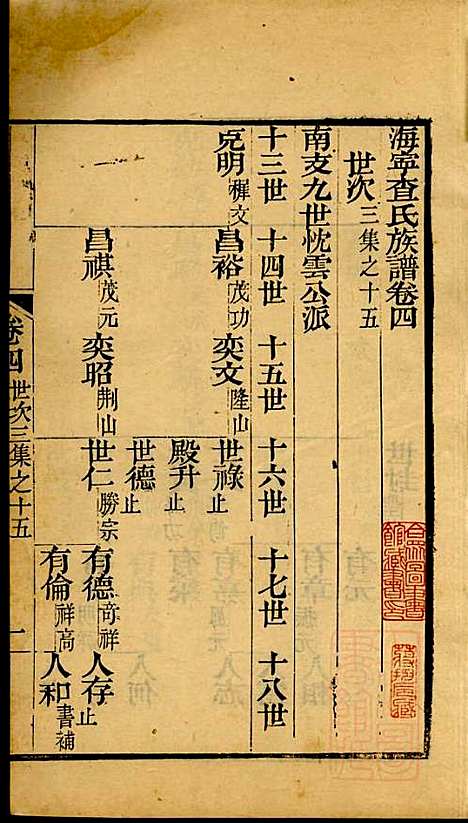 海寧查氏族譜卷四
世次三集之十五
南支九世忱雲公派
十三世 十四世 十五世 十六世 十七世 十八世
克明穉文 昌裕茂功 奕文隆山 世祿止
殿升止
世德止
昌祺茂元 奕昭荆山 世仁勝宗 有德奇祥 人存止
有倫祥高 人和書補
卷四 世次三集之十五 一